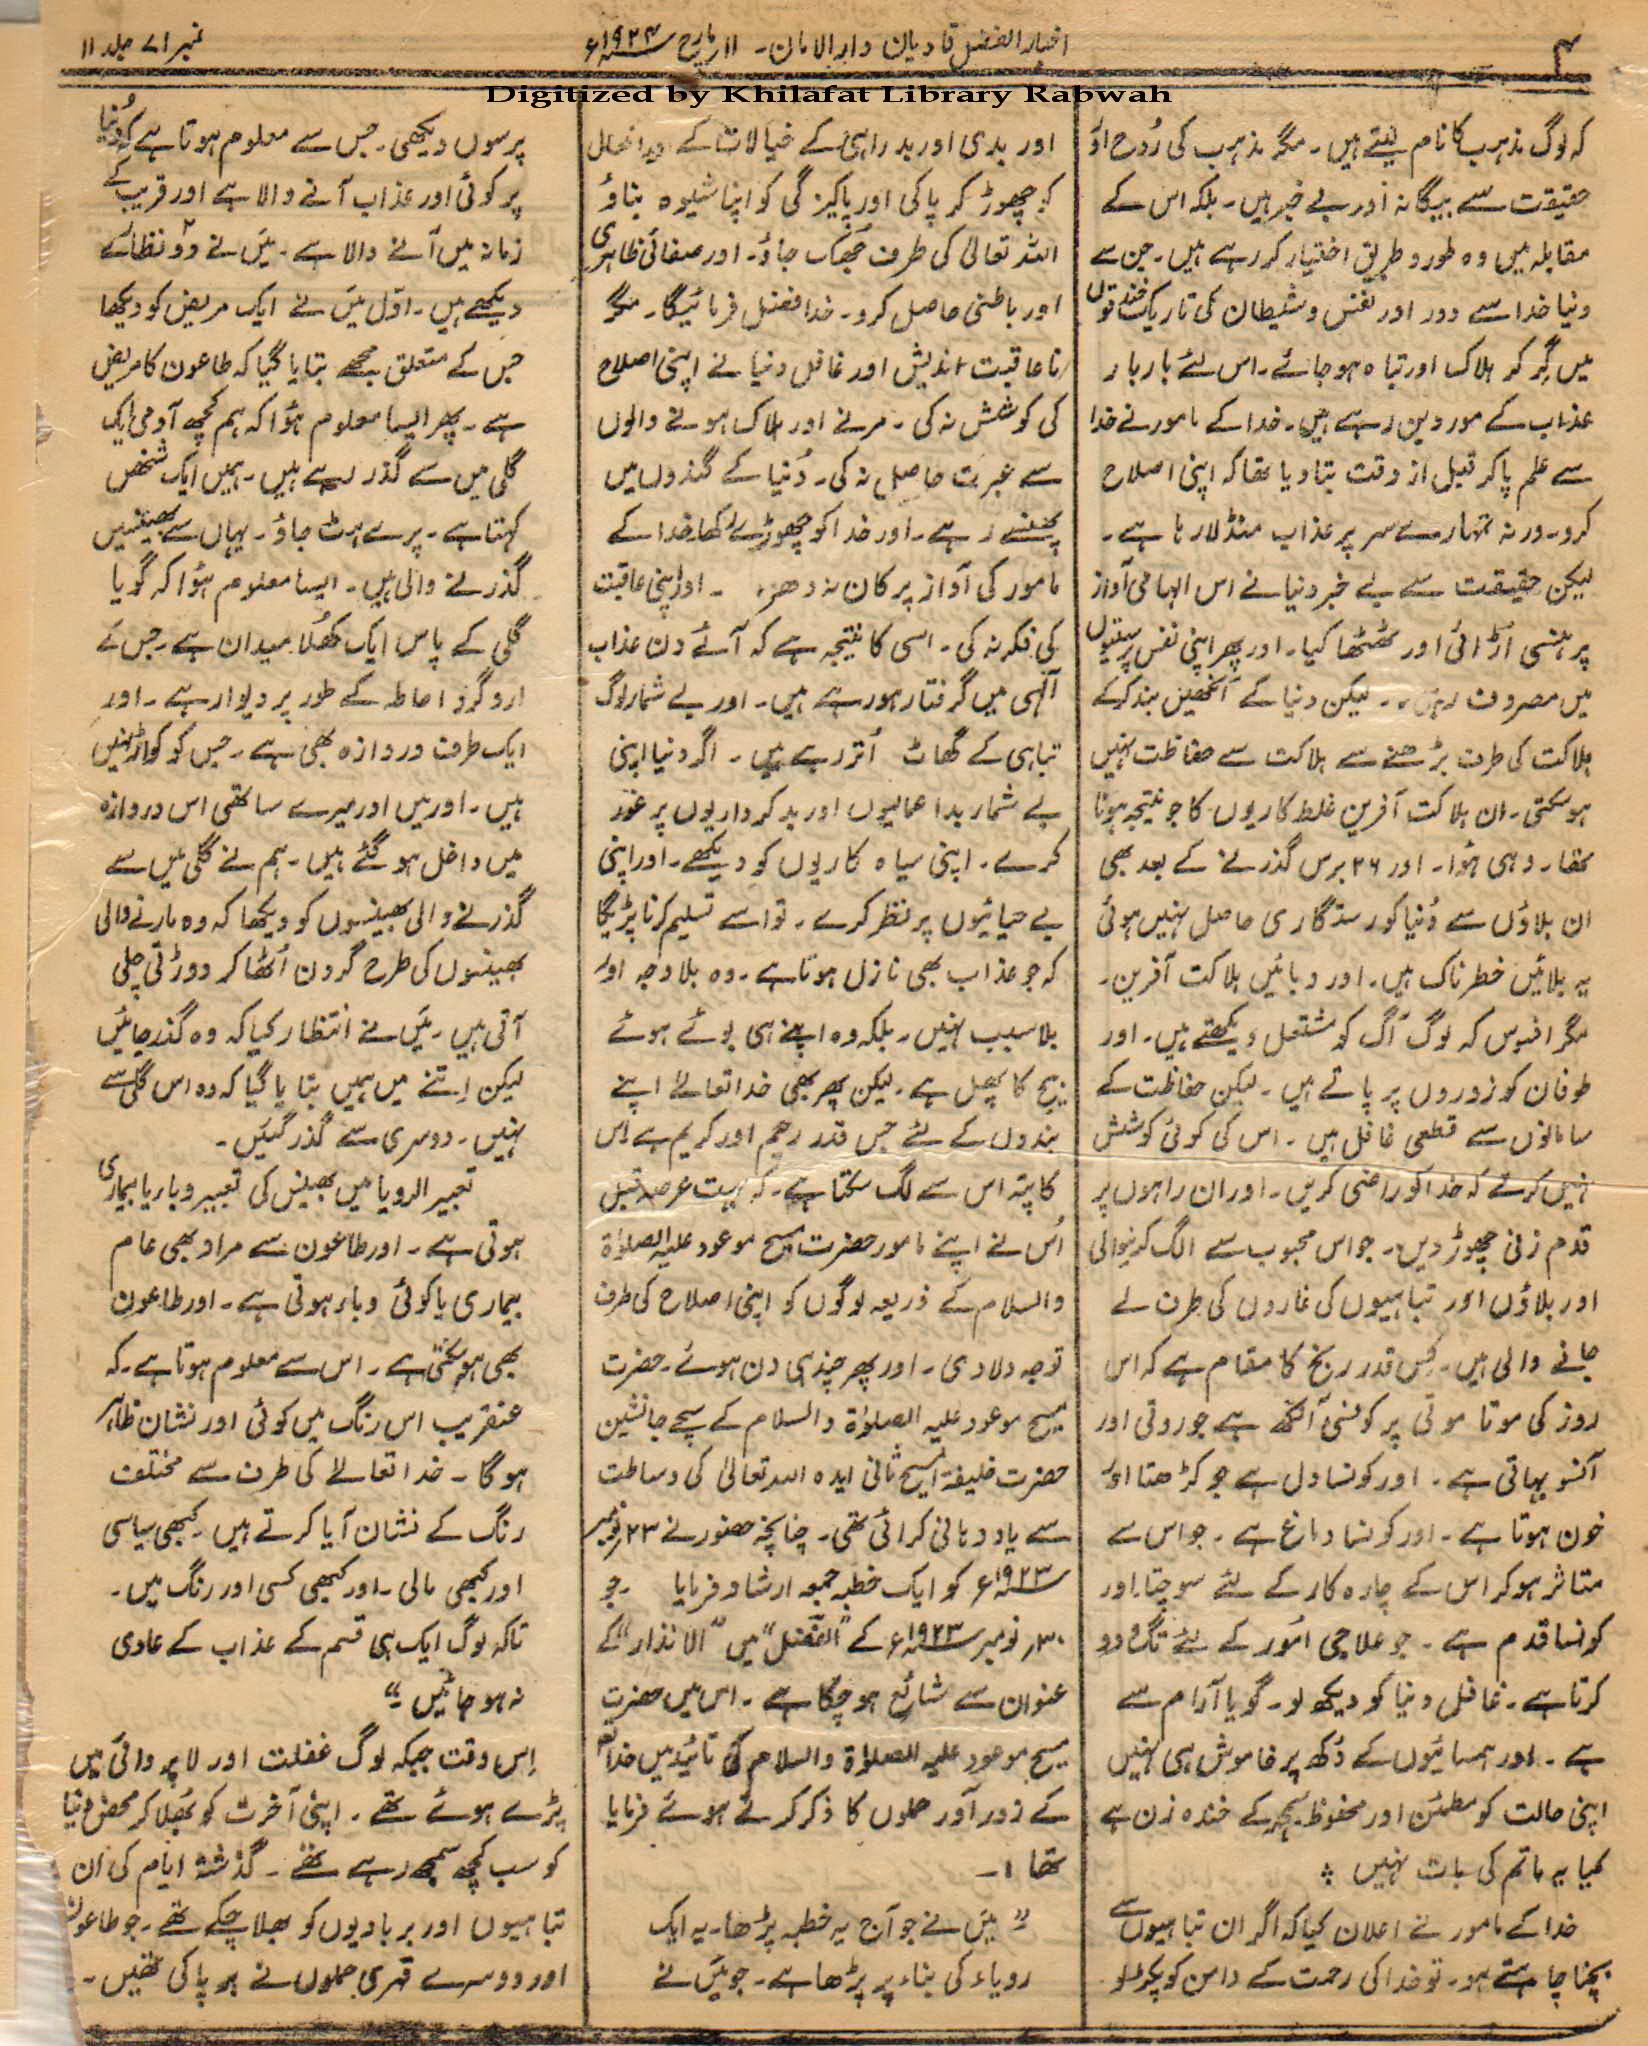 ۴
اخبار الفضل قادیان دارالامان - ۱۱ مارچ ۱۹۲۴ء
نمبر ۷۱ جلد ۱۱
Digitized by Khilafat Library Rabwah
کہ لوگ مذہب کا نام لیتے ہیں۔ مگر مذہب کی رُوح اور
حقیقت سے بیگانہ اور بے خبر ہیں۔ بلکہ اس کے
مقابلہ میں وہ طور و طریق اختیار کر رہے ہیں۔ جن سے
دنیا خدا سے دور اور نفس و شیطان کی تاریک خندقوں
میں گر کر ہلاک اور تباہ ہو جائے۔ اس لئے بار بار
عذاب کے مورد بن رہے ہیں۔ خدا کے مامور نے خدا
سے علم پا کر قبل از وقت بتا دیا تھا کہ اپنی اصلاح
کرو۔ ورنہ تمہارے سر پر عذاب منڈلا رہا ہے۔
لیکن حقیقت سے بے خبر دنیا نے اس الہامی آواز
پر ہنسی اُڑائی اور ٹھٹھا کیا۔ اور پھر اپنی نفس پرستیوں
میں مصروف رہی۔ لیکن دنیا کے آنکھیں بند کرکے
ہلاکت کی طرف بڑھنے سے ہلاکت سے حفاظت نہیں
ہو سکتی۔ ان ہلاکت آفرین غلط کاریوں کا جو نتیجہ ہونا
تھا۔ وہی ہُوا۔ اور ۲۶ برس گذرنے کے بعد بھی
ان بلاؤں سے دُنیا کو رستگاری حاصل نہیں ہوئی
یہ بلائیں خطرناک ہیں۔ اور وبائیں ہلاکت آفرین۔
مگر افسوس کہ لوگ آگ کو مشتعل دیکھتے ہیں۔ اور
طوفان کو زوروں پر پاتے ہیں۔ لیکن حفاظت کے
سامانوں سے قطعی غافل ہیں۔ اس کی کوئی کوشش
نہیں کرتے کہ خدا کو راضی کریں۔ اور ان راہوں پر
قدم زنی چھوڑ دیں۔ جو اس محبوب سے الگ کرنیوالی
اور بلاؤں اور تباہیوں کی غاروں کی طرف لے
جانے والی ہیں۔ کس قدر رنج کا مقام ہے کہ اس
روز کی موتا موتی پر کونسی آنکھ ہے جو روتی اور
آنسو بہاتی ہے۔ اور کونسا دل ہے جو کڑھتا اور
خون ہوتا ہے۔ اور کونسا دماغ ہے۔ جو اس سے
متاثر ہو کر اس کے چارہ کار کے لئے سوچتا۔ اور
کونسا قدم ہے۔ جو علاجی امُور کے لئے تگ و دو
کرتا ہے۔ غافل دنیا کو دیکھ لو۔ گویا آرام سے
ہے۔ اور ہمسائیوں کے دُکھ پر خاموش ہی نہیں
اپنی حالت کو مطمئن اور محفوظ سمجھ کے خندہ زن ہے
کیا یہ ماتم کی بات نہیں ؞
خدا کے مامور نے اعلان کیا کہ اگر ان تباہیوں سے
بچنا چاہتے ہو۔ تو خدا کی رحمت کے دامن کو پکڑ لو
اور بدی اور بد راہی کے خیالات کے اور افعال
کو چھوڑ کر پاکی اور پاکیزگی کو اپنا شیوہ بناؤ
اللہ تعالیٰ کی طرف جُھک جاؤ۔ اور صفائی ظاہری
اور باطنی حاصل کرو۔ خدا فضل فرمائیگا۔ مگر
ناعاقبت اندیش اور غافل دنیا نے اپنی اصلاح
کی کوشش نہ کی۔ مرنے اور ہلاک ہونے والوں
سے عبرت حاصل نہ کی۔ دُنیا کے گندوں میں
پھنسے رہے۔ اور خدا کو چھوڑے رکھا۔ خدا کے
مامور کی آواز پر کان نہ دھرا۔ اور اپنی عاقبت
کی فکر نہ کی۔ اسی کا نتیجہ ہے کہ آئے دن عذاب
الٰہی میں گرفتار ہو رہے ہیں۔ اور بے شمار لوگ
تباہی کے گھاٹ اُتر رہے ہیں۔ اگر دنیا اپنی
بے شمار بد اعمالیوں اور بد کرداریوں پر غور
کرے۔ اپنی سیاہ کاریوں کو دیکھے۔ اور اپنی
بے حیائیوں پر نظر کرے۔ تو اسے تسلیم کرنا پڑیگا
کہ جو عذاب بھی نازل ہوتا ہے۔ وہ بلا وجہ اور
بلا سبب نہیں۔ بلکہ وہ اپنے ہی بوئے ہوئے
بیج کا پھل ہے۔ لیکن پھر بھی خدا تعالےٰ اپنے
بندوں کے لئے جس قدر رحیم اور کریم ہے اس
کا پتہ اس سے لگ سکتا ہے۔ کہ بہت عرصہ قبل
اُس نے اپنے مامور حضرت مسیح موعود علیہ الصلوٰۃ
والسلام کے ذریعہ لوگوں کو اپنی اصلاح کی طرف
توجہ دلا دی۔ اور پھر چند ہی دن ہوئے۔ حضرت
مسیح موعود علیہ الصلوٰۃ والسلام کے سچے جانشین
حضرت خلیفۃ المسیح ثانی ایدہ اللہ تعالیٰ کی وساطت
سے یاد دہانی کرائی تھی۔ چنانچہ حضور نے ۲۳ نومبر
۱۹۲۳ء کو ایک خطبہ جمعہ ارشاد فرمایا۔ جو
۳۰ نومبر ۱۹۲۳ء کے "الفضل" میں "الانذار" کے
عنوان سے شائع ہو چکا ہے۔ اس میں حضرت
مسیح موعود علیہ الصلوٰۃ والسلام کی تائید میں خدا
کے زور آور حملوں کا ذکر کرتے ہوئے فرمایا
تھا :۔
"میں نے جو آج یہ خطبہ پڑھا۔ یہ ایک
رویاء کی بناء پر پڑھا ہے۔ جو میں نے
پرسوں دیکھی۔ جس سے معلوم ہوتا ہے کہ دُنیا
پر کوئی اور عذاب آنے والا ہے اور قریب کے
زمانہ میں آنے والا ہے۔ میں نے دو نظارے
دیکھے ہیں۔ اوّل میں نے ایک مریض کو دیکھا
جس کے متعلق مجھے بتایا گیا کہ طاعون کا مریض
ہے۔ پھر ایسا معلوم ہُوا کہ ہم کچھ آدمی ایک
گلی میں سے گذر رہے ہیں۔ ہمیں ایک شخص
کہتا ہے۔ پرے ہٹ جاؤ۔ یہاں سے بھینسیں
گذرنے والی ہیں۔ ایسا معلوم ہُوا کہ گویا
گلی کے پاس ایک کُھلا میدان ہے۔ جس کے
ارد گرد احاطہ کے طور پر دیوار ہے۔ اور
ایک طرف دروازہ بھی ہے۔ جس کو کواڑ نہیں
ہیں۔ اور میں اور میرے ساتھی اس دروازہ
میں داخل ہو گئے ہیں۔ ہم نے گلی میں سے
گذرنے والی بھینسوں کو دیکھا کہ وہ مارنے والی
بھینسوں کی طرح گردن اُٹھا کر دوڑتی چلی
آتی ہیں۔ میں نے انتظار کیا کہ وہ گذر جائیں
لیکن اتنے میں ہمیں بتایا گیا کہ وہ اس گلی سے
نہیں۔ دوسری سے گذر گئیں۔
تعبیر الرویا میں بھینس کی تعبیر وبا یا بیماری
ہوتی ہے۔ اور طاعون سے مراد بھی عام
بیماری یا کوئی وباء ہوتی ہے۔ اور طاعون
بھی ہو سکتی ہے۔ اس سے معلوم ہوتا ہے۔ کہ
عنقریب اس رنگ میں کوئی اور نشان ظاہر
ہو گا۔ خدا تعالےٰ کی طرف سے مختلف
رنگ کے نشان آیا کرتے ہیں۔ کبھی سیاسی
اور کبھی مالی۔ اور کبھی کسی اور رنگ میں۔
تاکہ لوگ ایک ہی قسم کے عذاب کے عادی
نہ ہو جائیں۔"
اِس وقت جبکہ لوگ غفلت اور لاپروائی میں
پڑے ہوئے تھے۔ اپنی آخرت کو بُھلا کر محض دنیا
کو سب کچھ سمجھ رہے تھے۔ گذشتہ ایام کی اُن
تباہیوں اور بربادیوں کو بھلا چکے تھے۔ جو طاعون
اور دوسرے قہری حملوں نے برپا کی تھیں۔